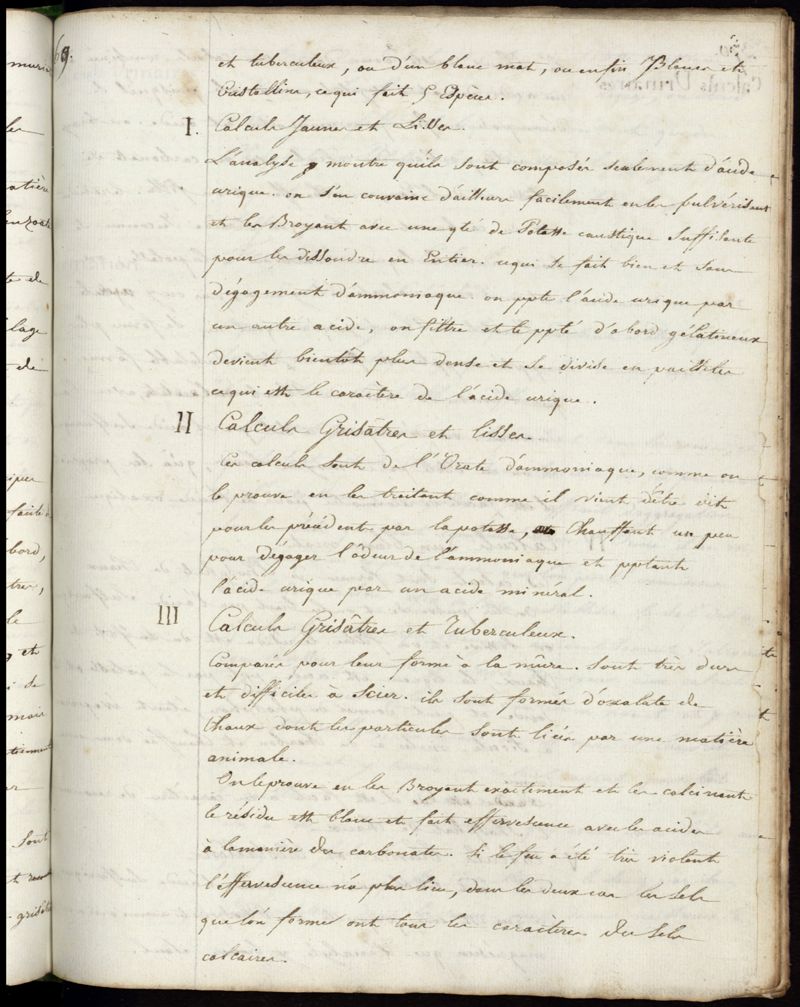 69.
et tuberculeux, ou d'un blanc mat, ou enfin Blancs et
Cristallins, ce qui fait 5 Espèces.
I. Calculs Jaunes et Lisses.
L'analyse montre qu'ils sont composés seulement d'acide
urique. on s'en convainc d'ailleurs facilement en les pulvérisant
et les Broyant avec une qté de Potasse caustique suffisante
pour les dissoudre en Entier. ce qui se fait bien et sans
dégagement d'ammoniaque. on ppte l'acide urique par
un autre acide, on filtre et le ppté d'abord gélatineux
devient bientôt plus dense et se divise en paillettes
ce qui est le caractère de l'acide urique.
II Calculs Grisâtres et lisses.
Ces calculs sont de l'Urate d'ammoniaque, comme on
le prouve en les traitant comme il vient d'être dit
pour les précédents par la potasse, Chauffant un peu
pour dégager l'odeur de l'ammoniaque et pptant
l'acide urique par un acide minéral.
III Calculs Grisâtres et Tuberculeux.
Comparés pour leur forme à la mûre. sont très durs
et difficiles à Scier. ils sont formés d'oxalate de
Chaux dont les particules sont liées par une matière
animale.
On le prouve en les Broyant exactement et les calcinant
le résidu est blanc et fait effervescence avec les acides
à la manière des carbonates. Si le feu a été très violent
l'effervescence n'a plus lieu, dans les deux cas les sels
que l'on forme ont tous les caractères des sels
calcaires.